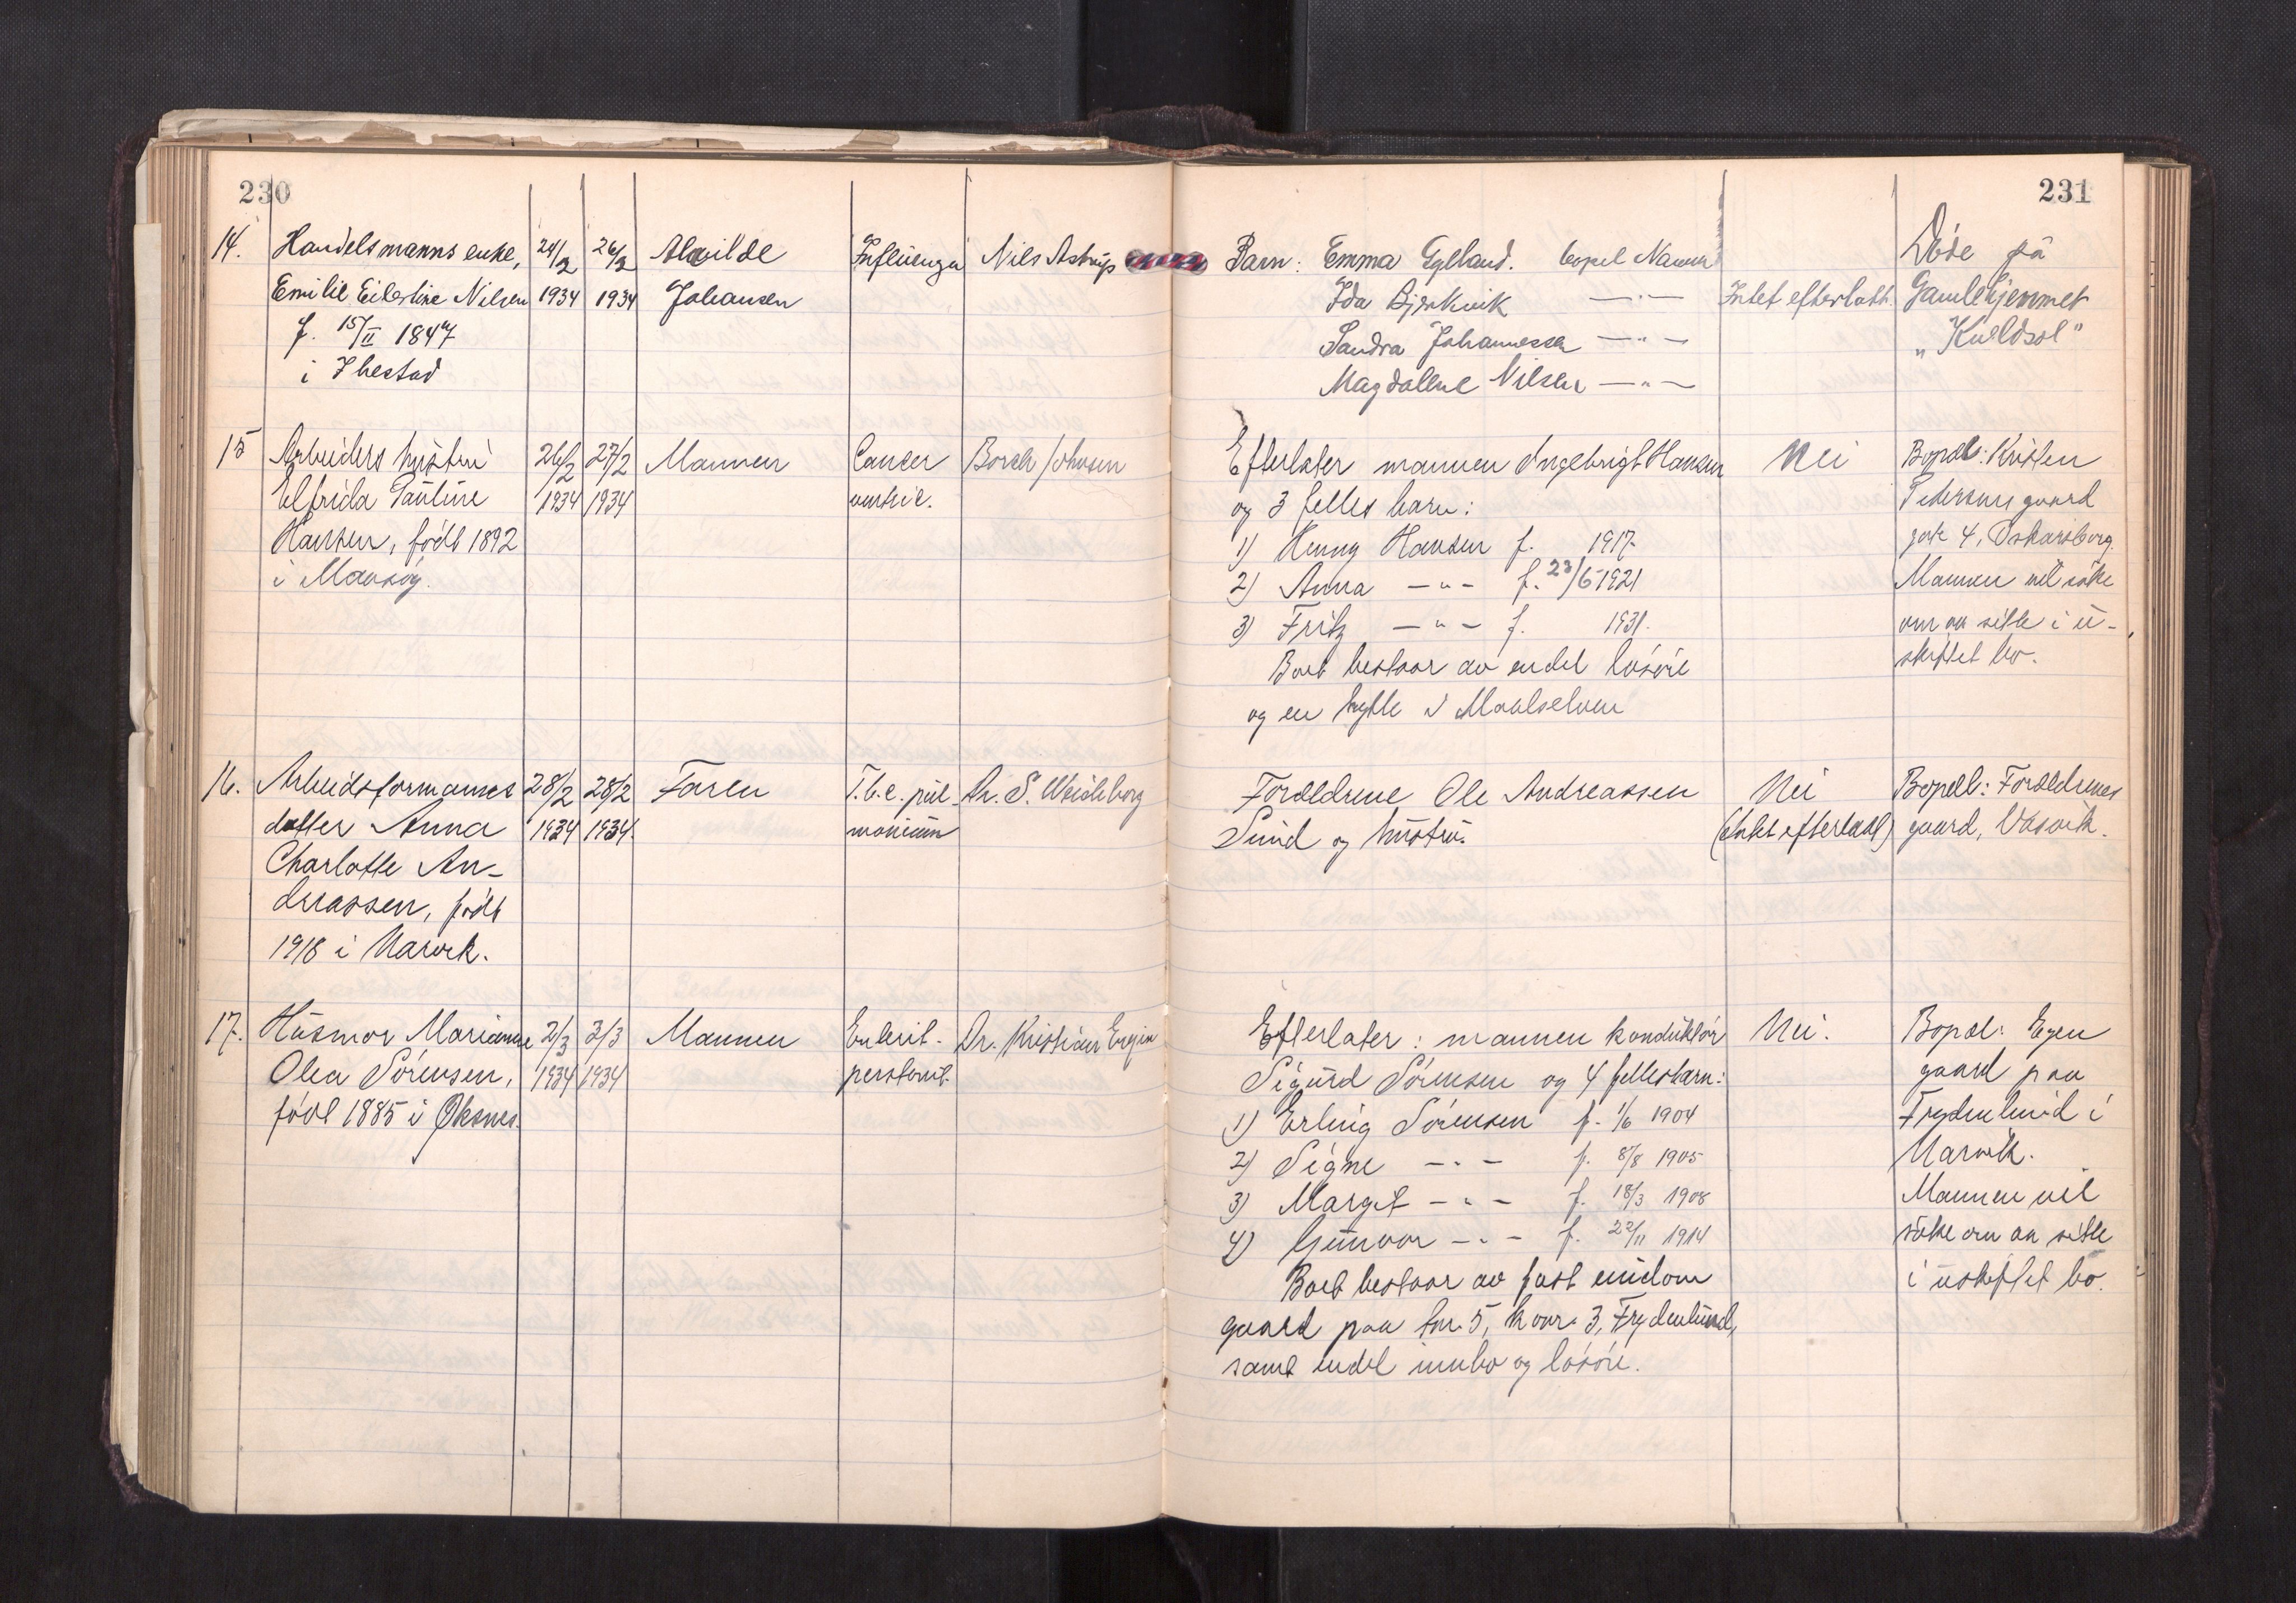 230
231
14. Handelsmanns enke, 24/2 26/2 Alvilde Influenza Nils Astrup Barn: Emma Bopel Narvik Döde på
Emilie Eilertine Nilsen 1934 1934 Johansen Ida Bjerkvik —"— Intet efterlatt. Gamlehjemmet
f. 15/II 1847 Sandra Johannessen —"— „Kveldsol"
i Ibestad Magdalene Nilsen —"—
15 Arbeiders hustru 26/2 27/2 Mannen Cancer Borch Johnsen Efterlater mannen Ingebrigt Hansen Nei Bopæl: Kristen
Elfrida Pauline 1934 1934 og 3 felles barn: Pedersens gaard
Hansen, född 1892 1) Henny Hansen f. 1917 gate 4, Oskarsborg.
i Maasöy. 2) Anna —"— f. 23/5 1921 Mannen vil söke
3) Fritz —"— f. 1931. om aa sitte i u-
Boet bestaar av endel lösöre skiftet bo.
og en hytte i Maalselven
16. Arbeidsformannes 28/2 28/2 Faren T.b.c. pul- Dr. S. Weideborg Forældrene Ole Andreassen Nei Bopæl: Forældrenes
datter Anna 1934 1934. monum Sund og hustru. (Intet efterlatt) gaard,
Charlotte An-
dreassen, født
1918 i Narvik.
17. Husmor Marianne 2/3 2/3 Mannen Enterit- Dr. Kristian Efterlater: mannen konduktör Nei. Bopæl: Egen
Olea Sörensen, 1934 1934 Sigurd Sörensen og 4 fellesbarn: gaard paa
född 1885 i Øksnes. 1) Erling Sörensen f. 1/6 1904 Frydenlund i
2) Signe —"— f. 8/8 1905 Narvik.
3) Margit —"— f. 18/3 1908 Mannen vil
4) Gunvor —"— f. 22/11 1914 söke om aa sitte
Boet bestaar av fast eiendom i uskiftet bo.
gaard paa tm. 5, kvar. 3, Frydenlund,
samt endel innbo og lösöre.